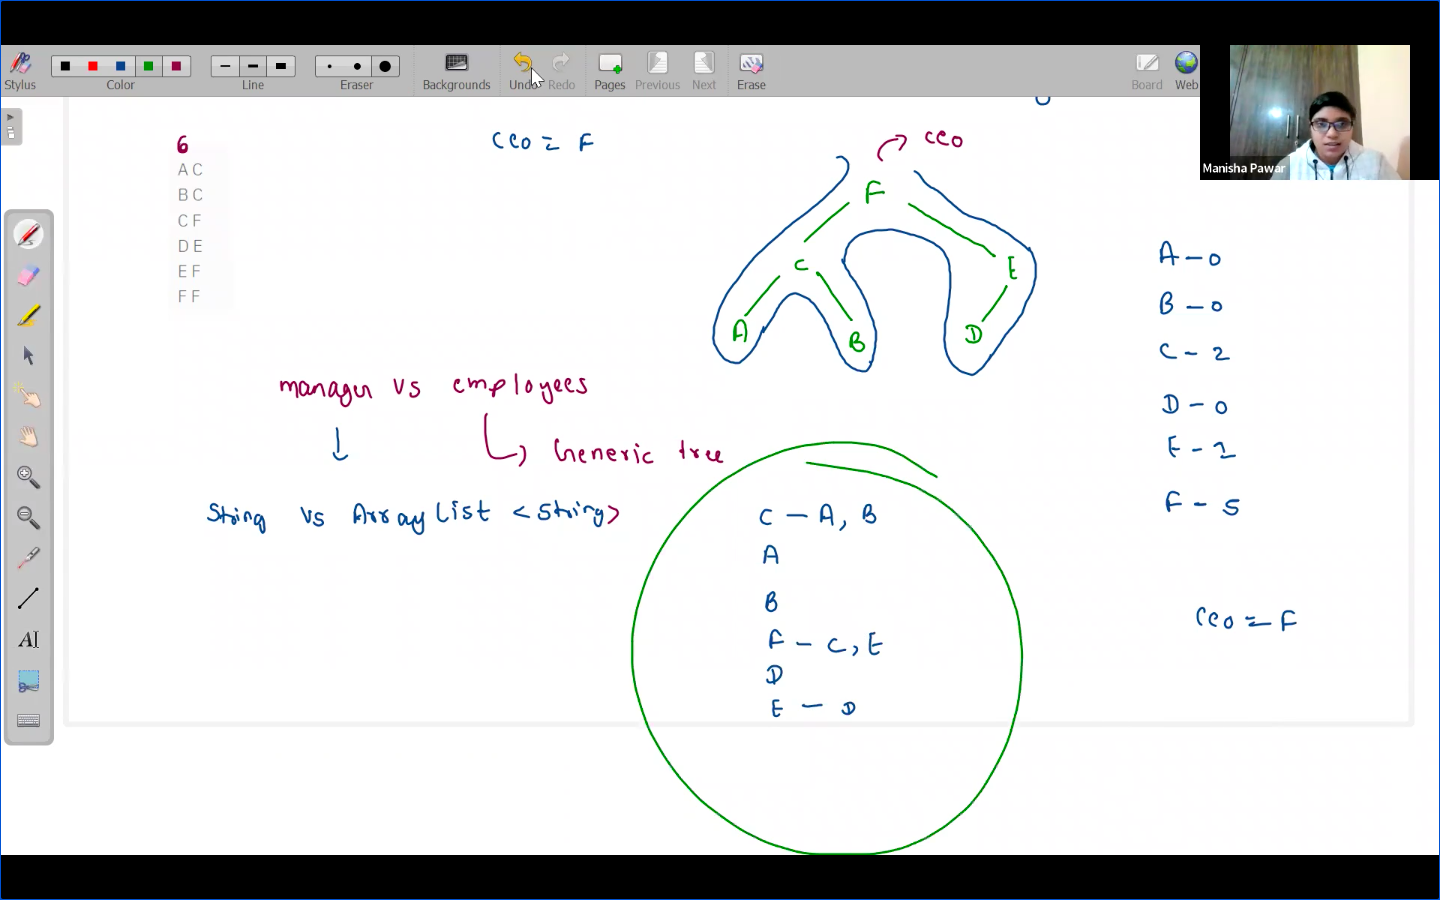 Stylus
Color
Line
Eraser
Backgrounds
Undo
Redo
Pages
Previous
Next
Erase
Board
Web
Manisha Pawar
6
A C
B C
C F
D E
E F
F F
CEO = F
CEO
F
C
E
A
B
D
A - 0
B - 0
C - 2
D - 0
E - 1
F - 5
manager vs employees
Generic tree
String vs ArrayList <String>
C - A, B
A
B
F - C, E
D
E - D
CEO = F
AI